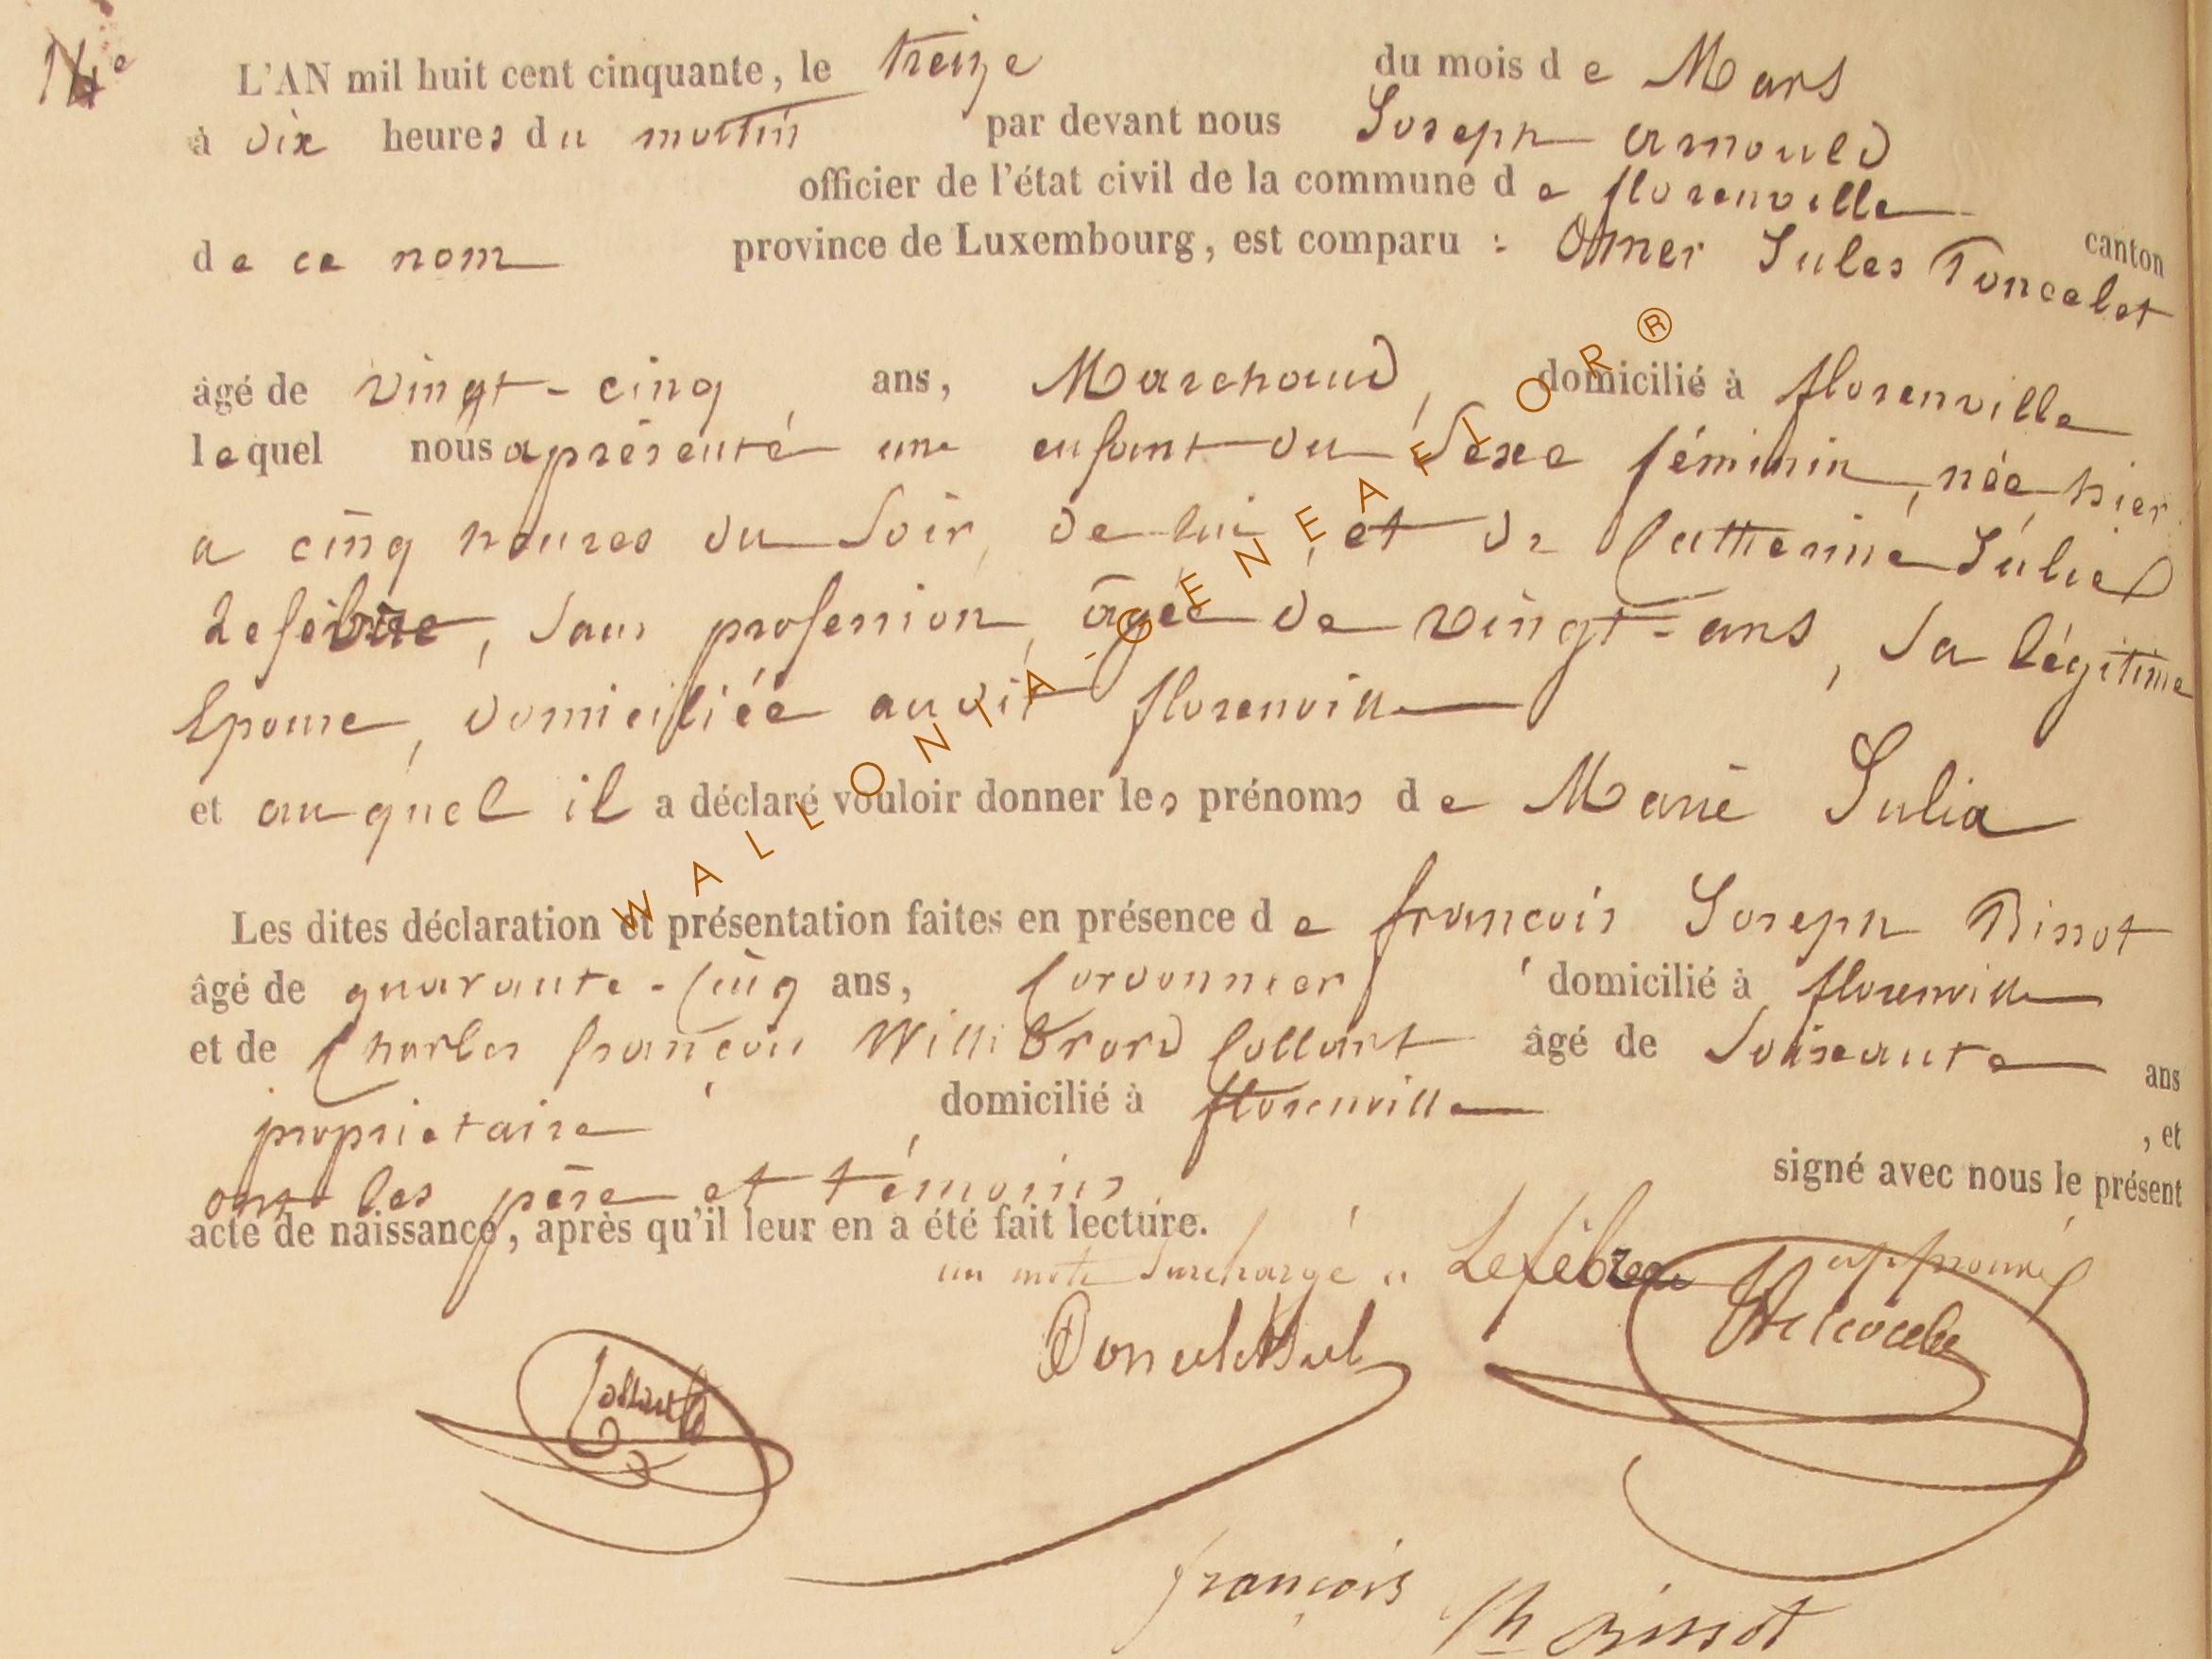 14e
L'AN mil huit cent cinquante, le treize du mois de Mars
à dix heures du mattin par devant nous Joseph arnould
officier de l'état civil de la commune de florenville canton
de ce nom province de Luxembourg, est comparu : Omer Jules Poncelet
âgé de vingt-cinq ans, Marchand, domicilié à florenville
lequel nous a présenté une enfant du Sexe féminin, née hier
a cinq heures du Soir, de lui, et de Catherine Julie
Lefebvre, Sans profession, âgée de vingt-ans, Sa légitime
Epouse, domiciliée audit florenville
et auquel il a déclaré vouloir donner les prénoms de Marie Julia
Les dites déclaration et présentation faites en présence de françois Joseph Binot
âgé de quarante-Cinq ans, Cordonnier domicilié à florenville
et de Charles françois Willibrord Collart âgé de Soixante ans
propriétaire, domicilié à florenville, et
ont les père et témoins signé avec nous le présent
acte de naissance, après qu'il leur en a été fait lecture.
un mot Surchargé " Lefèbvre approuvé
Collart
françois Jh Binsot
WALLONIA-GENEAFLOR®